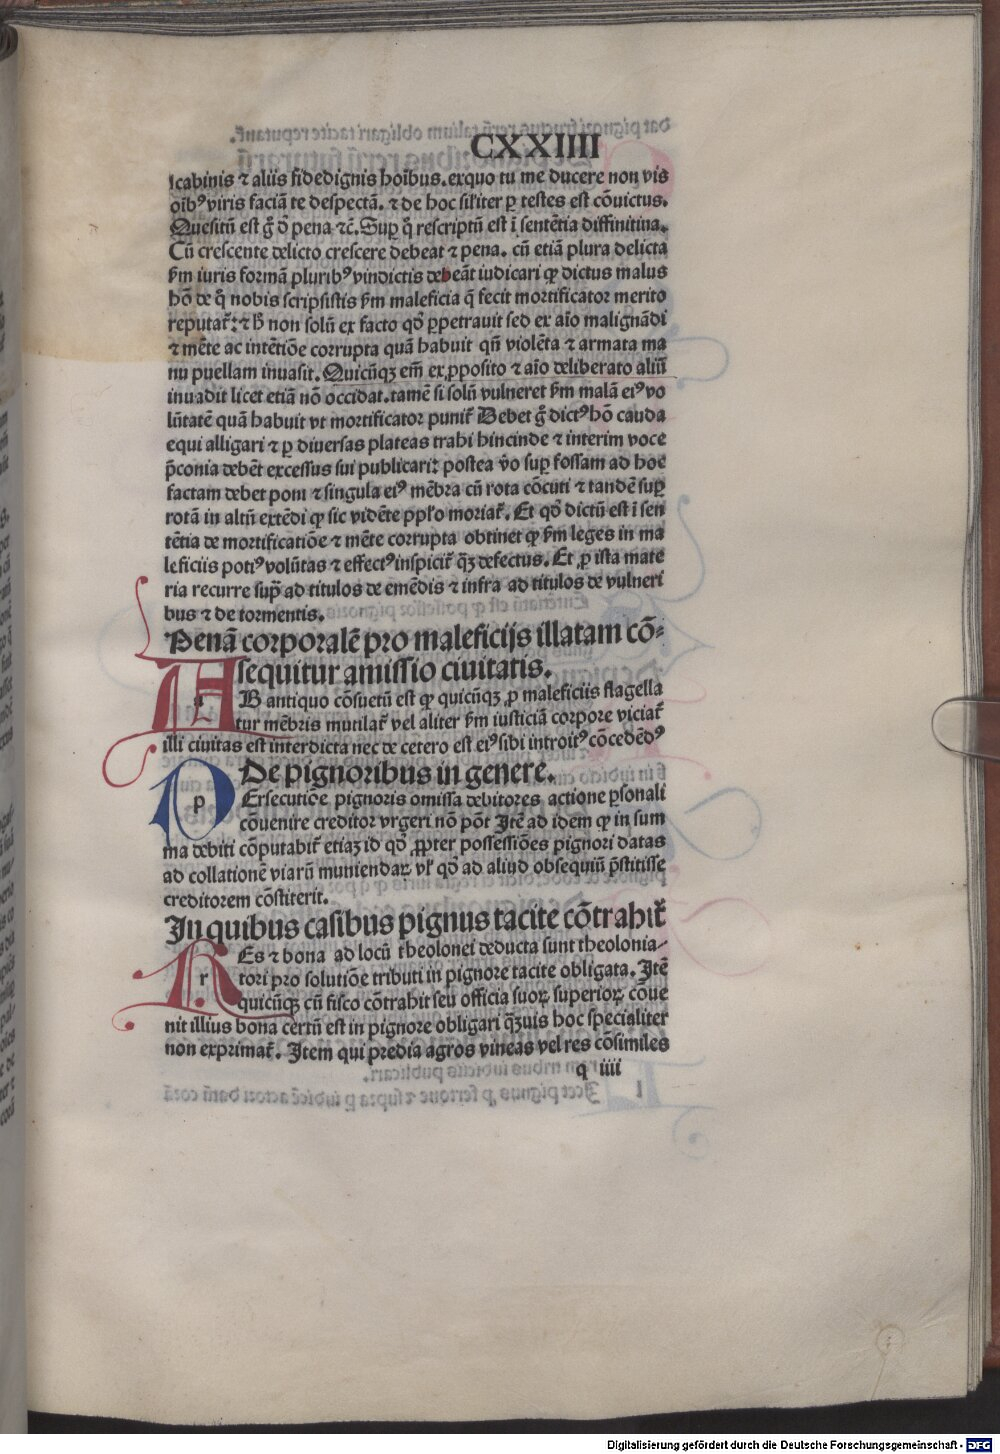 CXXIIII
scabinis ⁊ aliis fidedignis hoībus. exquo tu me ducere non vis
oībꝰ viris faciā te despectā. ⁊ de hoc siliter ꝑ testes est cōuictus.
Quesitū est gͥ ō pena ⁊c̄. Suꝑ q̊ rescriptū est ī sentētia diffinitiua.
Cū crescente delicto crescere debeat ⁊ pena. cū etiā plura delicta
ẜm iuris formā pluribꝰ vindictis debeāt iudicari ꝙ dictus malus
hō de q̊ nobis scripsistis ẜm maleficia q̄ fecit mortificator merito
reputat̄: ⁊ h̄ non solū ex facto qd̊ ꝑpetrauit sed ex aīo malignādi
⁊ mēte ac intētiōe corrupta quā habuit qn̄ violēta ⁊ armata ma
nu puellam inuasit. Quicūqꝫ em̄ ex ꝓposito ⁊ aīo deliberato aliū
inuadit licet etiā nō occidat. tamē si solū vulneret ẜm malā eiꝰ vo
lūtatē quā habuit vt mortificator punit̄ Debet gͥ dictꝰ hō cauda
equi alligari ⁊ ꝑ diuersas plateas trahi hincinde ⁊ interim voce
p̄conia debēt excessus sui publicari: postea v̊o suꝑ fossam ad hoc
factam debet poni ⁊ singula eiꝰ mēbra cū rota cōcuti ⁊ tandē suꝑ
rotā in altū extēdi ꝙ sic vidēte ppl̄o moriat̄. Et qd̊ dictū est ī sen
tētia de mortificatiōe ⁊ mēte corrupta obtinet ꝙ ẜm leges in ma
leficiis potiꝰ volūtas ⁊ effectꝰ inspicit̄ qꝫ defectus. Et ꝓ ista mate
ria recurre supͣ ad titulos de emēdis ⁊ infra ad titulos de vulneri
bus ⁊ de tormentis.
Penā corporalē pro maleficijs illatam cō⸗
sequitur amissio ciuitatis.
AB antiquo cōsuetū est ꝙ quicūqꝫ ꝓ maleficiis flagella
tur mēbris mutilat̄ vel aliter ẜm iusticiā corpore viciat̄
illi ciuitas est interdicta nec de cetero est eiꝰ sibi introitꝰ cōcedēdꝰ
De pignoribus in genere.
PErsecutiōe pignoris omissa debitores actione ꝑsonali
cōuenire creditor vrgeri nō pōt Itē ad idem ꝙ in sum
ma debiti cōputabit̄ etiaꝫ id qd̊ ꝓpter possessiōes pignori datas
ad collationē viarū muniendaꝝ vl̓ qd̊ ad aliud obsequiū p̄stitisse
creditorem cōstiterit.
In quibus casibus pignus tacite cōtrahit̄
REs ⁊ bona ad locū theolonei deducta sunt theolonia⸗
tori pro solutiōe tributi in pignore tacite obligata. Itē
quicūqꝫ cū fisco cōtrahit seu officia suoꝝ superioꝝ cōue
nit illius bona certū est in pignore obligari qꝫuis hoc specialiter
non exprimat̄. Item qui predia agros vineas vel res cōsimiles
q iiii
Digitalisierung gefördert durch die Deutsche Forschungsgemeinschaft - DFG